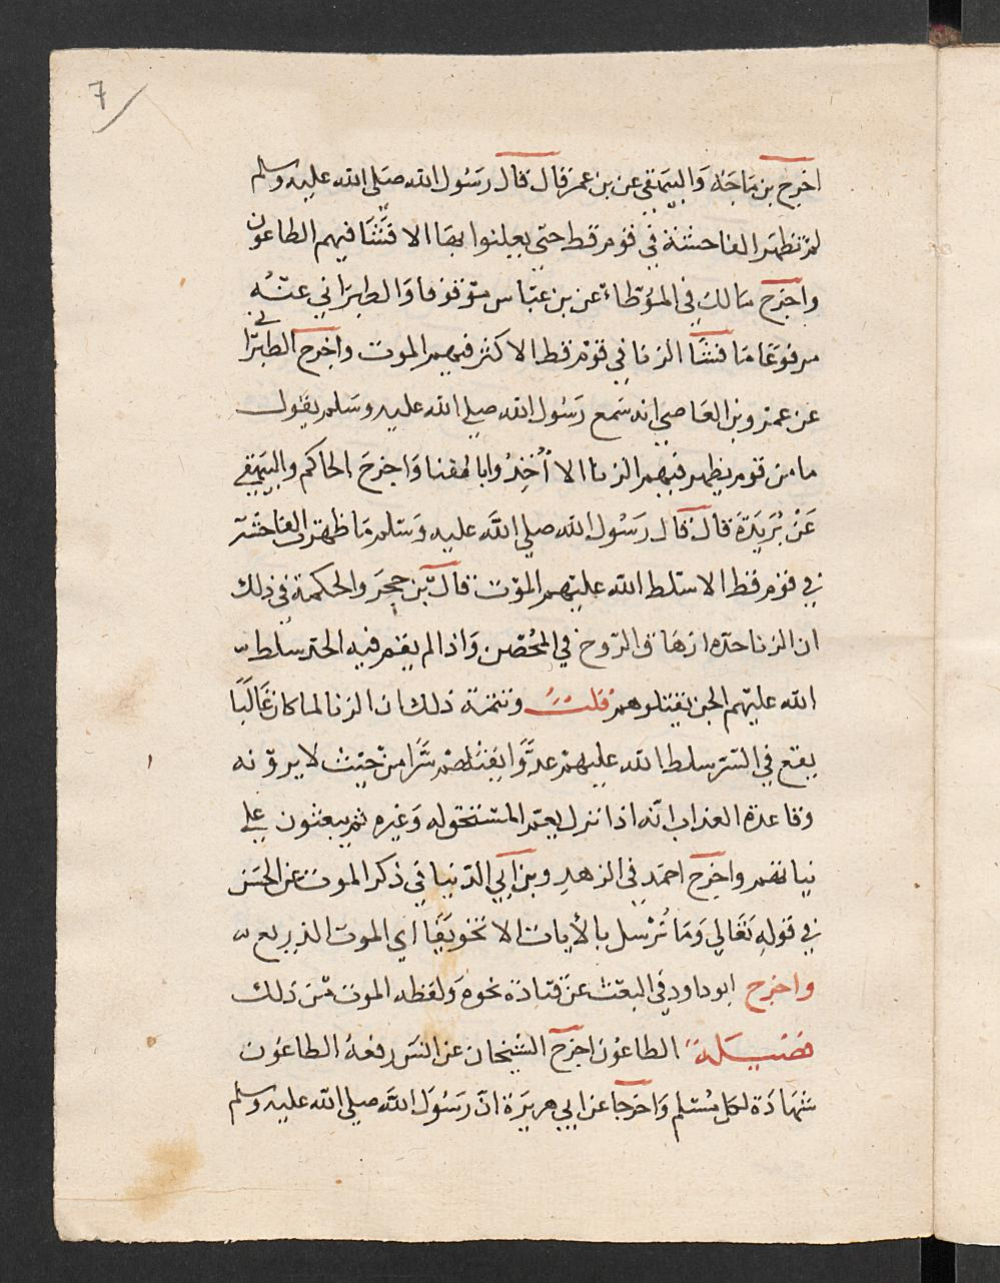 7
اخرج بن ماجَه وَالبيَهقي عن بن عمرَ قال قال رسَول الله صَلي الله عليه وسلم
لمَ تظهَر الفاحشة في قومٍ قط حتي يعلنوا بهَا الا فَشَا فيهم الطاعون
واخرج مَالك في المُوَطّاء عن بن عبّاس موَقوفا وَالطبرَاني عنَه
مرفوعًا مَا فشَا الزنا في قوَم قط الا كثر فيهم الموت واخرج الطبرَاني
عن عمَرو بن العَاصي انه سَمع رَسُول الله صلي الله عليه وسَلم يقول
ما من قوم يظهر فيهم الزنا الا أُخِذُوا بالفنا وَاخرجَ الحاكم والبيَهقي
عَنْ بُرَيدَة قال قال رسَوُل الله صلي اللَّه عليه وَسَلم مَا ظهرت الفاحشَة
في قوَم قط الا سَلط الله عليَهم الموَت قال بن حجرَ والحكمة في ذلك
ان الزنا حدّه ازهَاق الرّوح في المُحْصَن وَاذا لم يقمَ فيه الحدّ سلط
الله عليَهم الجن يقتلوهمَ قلتُ وتتمَة ذلك ان الزنا لما كان غَالَبًا
يقع في السَر سلط الله عليهمَ عدَوًّا يقتلهمَ سًرًّا من حَيث لا يروَنه
وقاعدة العذاب انّه اذا نزل يعمّ المسَتحق له وَغيره ثم يبعثون علي
نياتهم واخرج احمَد في الزهدِ وبن أبي الدّنيا في ذكر الموت عن الحسَن
في قوَلهِ تعَالي وَمَا نُرْسل بالأيات الا تخويفًا اي الموت الذريع
واخرج ابو داود في البعَث عن قتادَة نحوهَ وَلفظه الموت مّن ذلك
فضيلة الطاعوُن اخرَج الشيخان عن انسَ رفعهُ الطاعوُن
شهَادَة لكل مُسَلم وَاخرجَا عن ابي هريرَة انّ رَسُوَل اللَّه صلي اللّه عليه وسلم